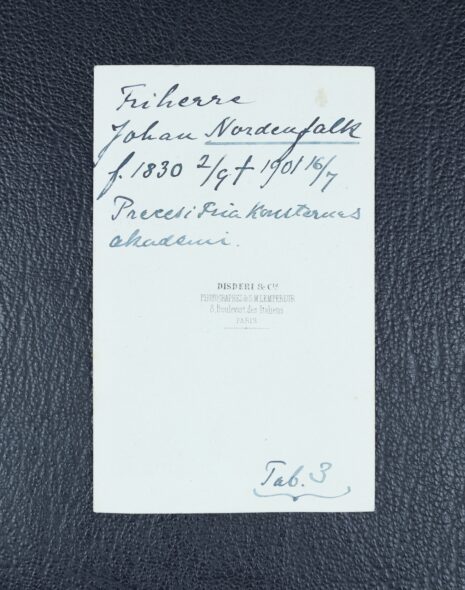 Friherre
Johan Nordenfalk
f. 1830 2/9 † 1901 16/7
Preces i Fria Konsternas
akademi.
DISDERI & Cie
PHOTOGRAPHES DE S.M. L'EMPEREUR
8, Boulevart des Italiens
PARIS
Tab. 3